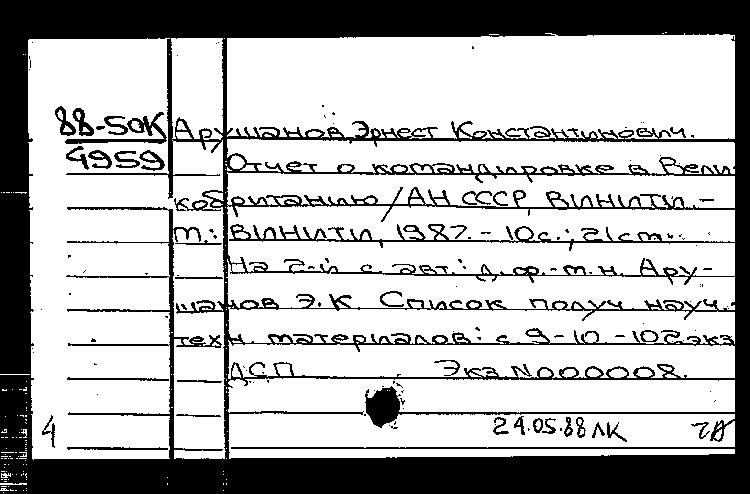 88-50К Арушанов, Эрнест Константинович.
4959 Отчет о командировке в Вели-
кобританию / АН СССР, ВИНИТИ. -
М.: ВИНИТИ, 1987. - 10с.; 21см..
На 2-й с. авт.: д.ф.-м.н. Ару-
шанов Э.К. Список получ. науч.-
техн. материалов: с. 9-10. - 102экз
ДСП. Экз. N000008.
4 24.05.88 ЛК